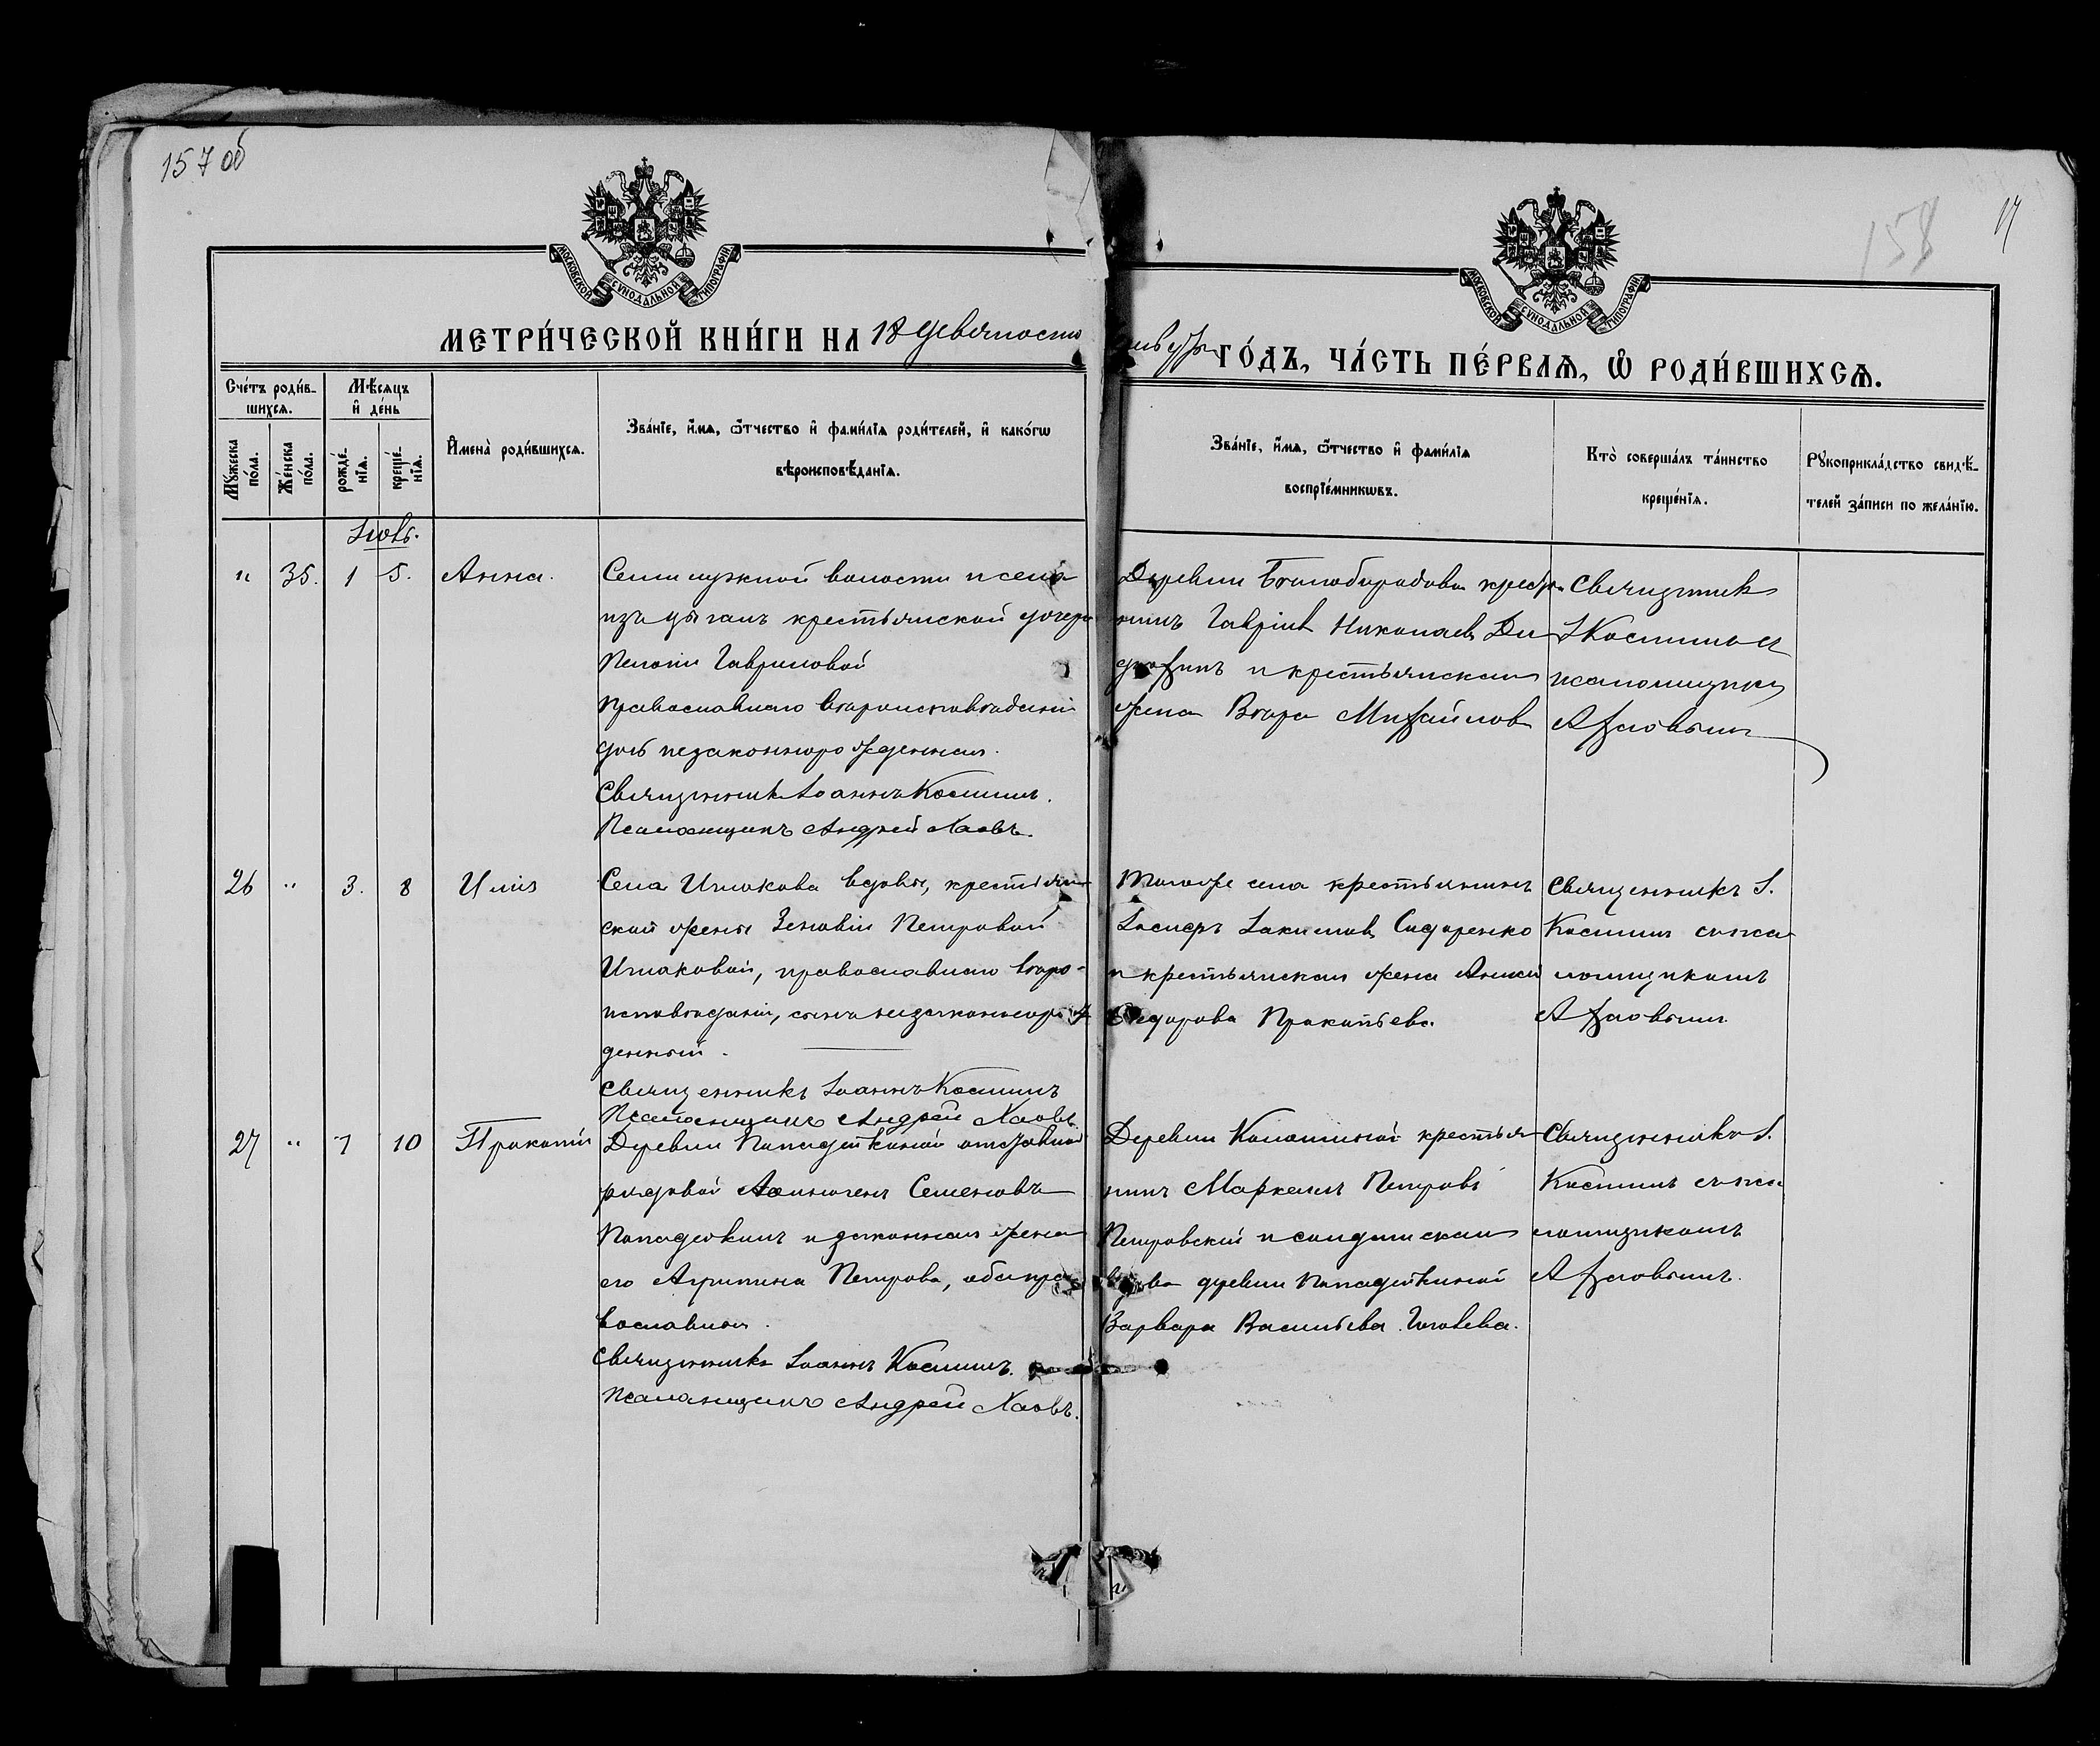 157 об
158
17
МОСКОВСКОЙ СУНОДАЛЬНОЙ ТИПОГРАФІИ
МОСКОВСКОЙ СУНОДАЛЬНОЙ ТИПОГРАФІИ
МЕТРИ́ЧЕСКОЙ КНИ́ГИ НА 18 девяносто
ГО́ДЪ, ЧА́СТЬ ПЕ́РВАѦ, Ѡ҆ РОДИ́ВШИХСѦ.
Сче́тъ роди́в-
шихсѧ.
Мѣ́сѧцъ
и҆ де́нь
Мꙋ́жеска
по́ла.
Же́нска
по́ла.
рожде́-
нїѧ.
креще́-
нїѧ.
И҆мена̀ роди́вшихсѧ.
Зва́нїе, и҆́мѧ, ѻ҆́тчество и҆ фами́лїѧ роди́телей, и҆ како́гѡ
вѣроисповѣ́данїѧ.
Зва́нїе, и҆́мѧ, ѻ҆́тчество и҆ фами́лїѧ
воспрїе́мникѡвъ.
Кто̀ соверша́лъ та́инство
креще́нїѧ.
Рꙋкоприкла́дство свидѣ́-
телей за́писи по жела́нїю.
Іюль.
" 35. 1 5. Анна.
Семилужной волости и села
изъ цыганъ крестьянской дочери
Гавриловой
православнаго вѣроисповѣданія
дочь незаконнорожденная.
Священникъ Іоаннъ Космин.
Псаломщикъ Андрей Хаовъ.
Деревни Бѣлобородовой крестья
нинъ Гавріилъ Николаевъ
и крестьянская
жена Вѣра Михайлова
Священник
І Космин съ
псаломщик
26 " 3. 8 Илія
Села Ишакова вдовы, крестьян
ской жены Зеновіи Петровой
Ишаковой, православнаго вѣро-
исповѣданія, сынъ незаконнорож
денный.
Священникъ Іоаннъ Косминъ
Псаломщикъ Андрей Хаовъ
Тогоже села крестьянинъ
Іакимовъ Сидоренко
и крестьянская жена Анна
Ѳедорова Прокопьева.
Священникъ І.
Космин съ пса
ломщикомъ
27 " 7 10 Прокопій
Деревни Попадейкиной отставной
рядовой Аѳиногенъ Семеновъ
Попадейкинъ и законная жена
его Агрипина Петрова, оба пра
вославные.
Священникъ Іоаннъ Косминъ.
Псаломщикъ Андрей Хаовъ.
Деревни крестья
нинъ Маркеллъ Петровъ
Петровскій и солдатская
вдова деревни Попадейкиной
Варвара Васильева
Священникъ І.
Космин съ пса
ломщикомъ